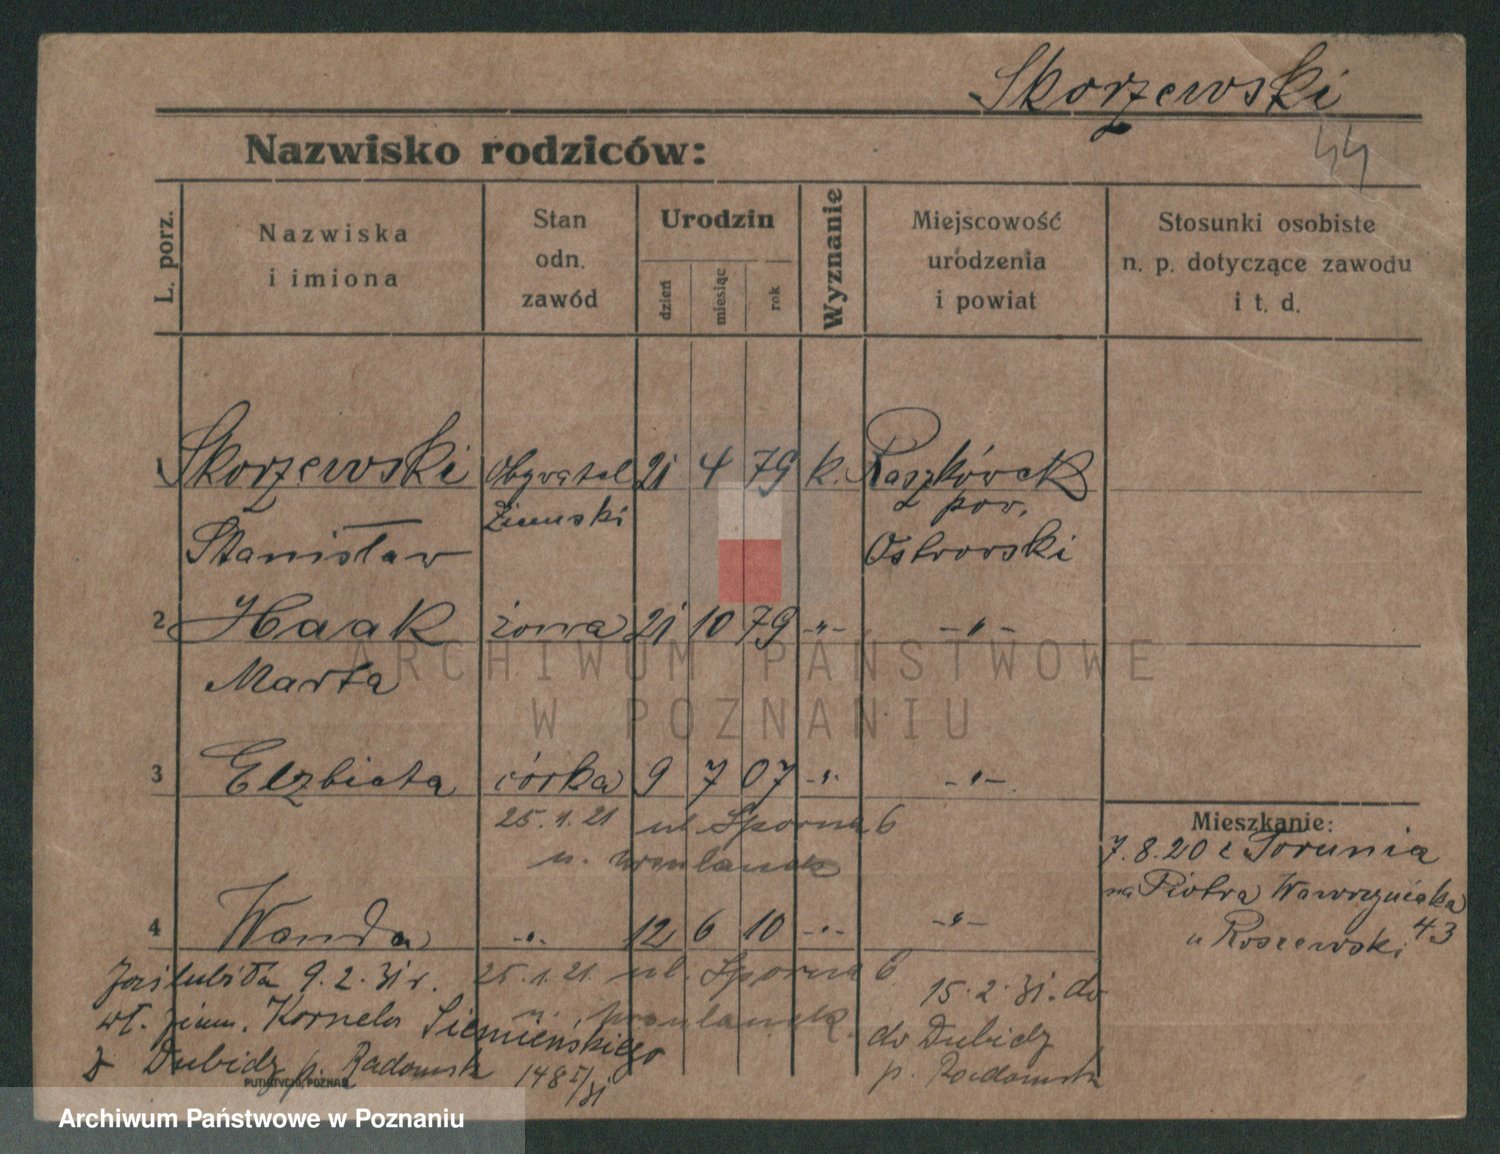 Skorzewski
44
Nazwisko rodziców:
L. porz.
Nazwiska
i imiona
Stan
odn.
zawód
Urodzin
dzień
miesiąc
rok
Wyznanie
Miejscowość
urodzenia
i powiat
Stosunki osobiste
n. p. dotyczące zawodu
i t. d.
1 Skorzewski Obywatel 21 4 79 k. Raszkówek
Ziemski pow.
Stanisław Ostrowski
2 Haak żona 21 10 79 -"- -"-
Marta
3 Elzbieta córka 9 7 07 -"- -"-
25.1.21 ul Sporna 6
u.
Mieszkanie:
7.8.20 z Torunia
na Piotra Wawrzyniaka
43
u Roszewski
4 Wanda -"- 12 6 10 -"- -"-
25.1.21. ul. Sporna 6
u.
15.2.31. do
do Dubidz
p. Radomsk
zaślubiła 9.2.31 r.
wł. ziem. Kornela Siemieńskiego
z Dubidz p. Radomsk 148 I/31
PUTIATYCKI, POZNAŃ
ARCHIWUM PAŃSTWOWE
W POZNANIU
Archiwum Państwowe w Poznaniu